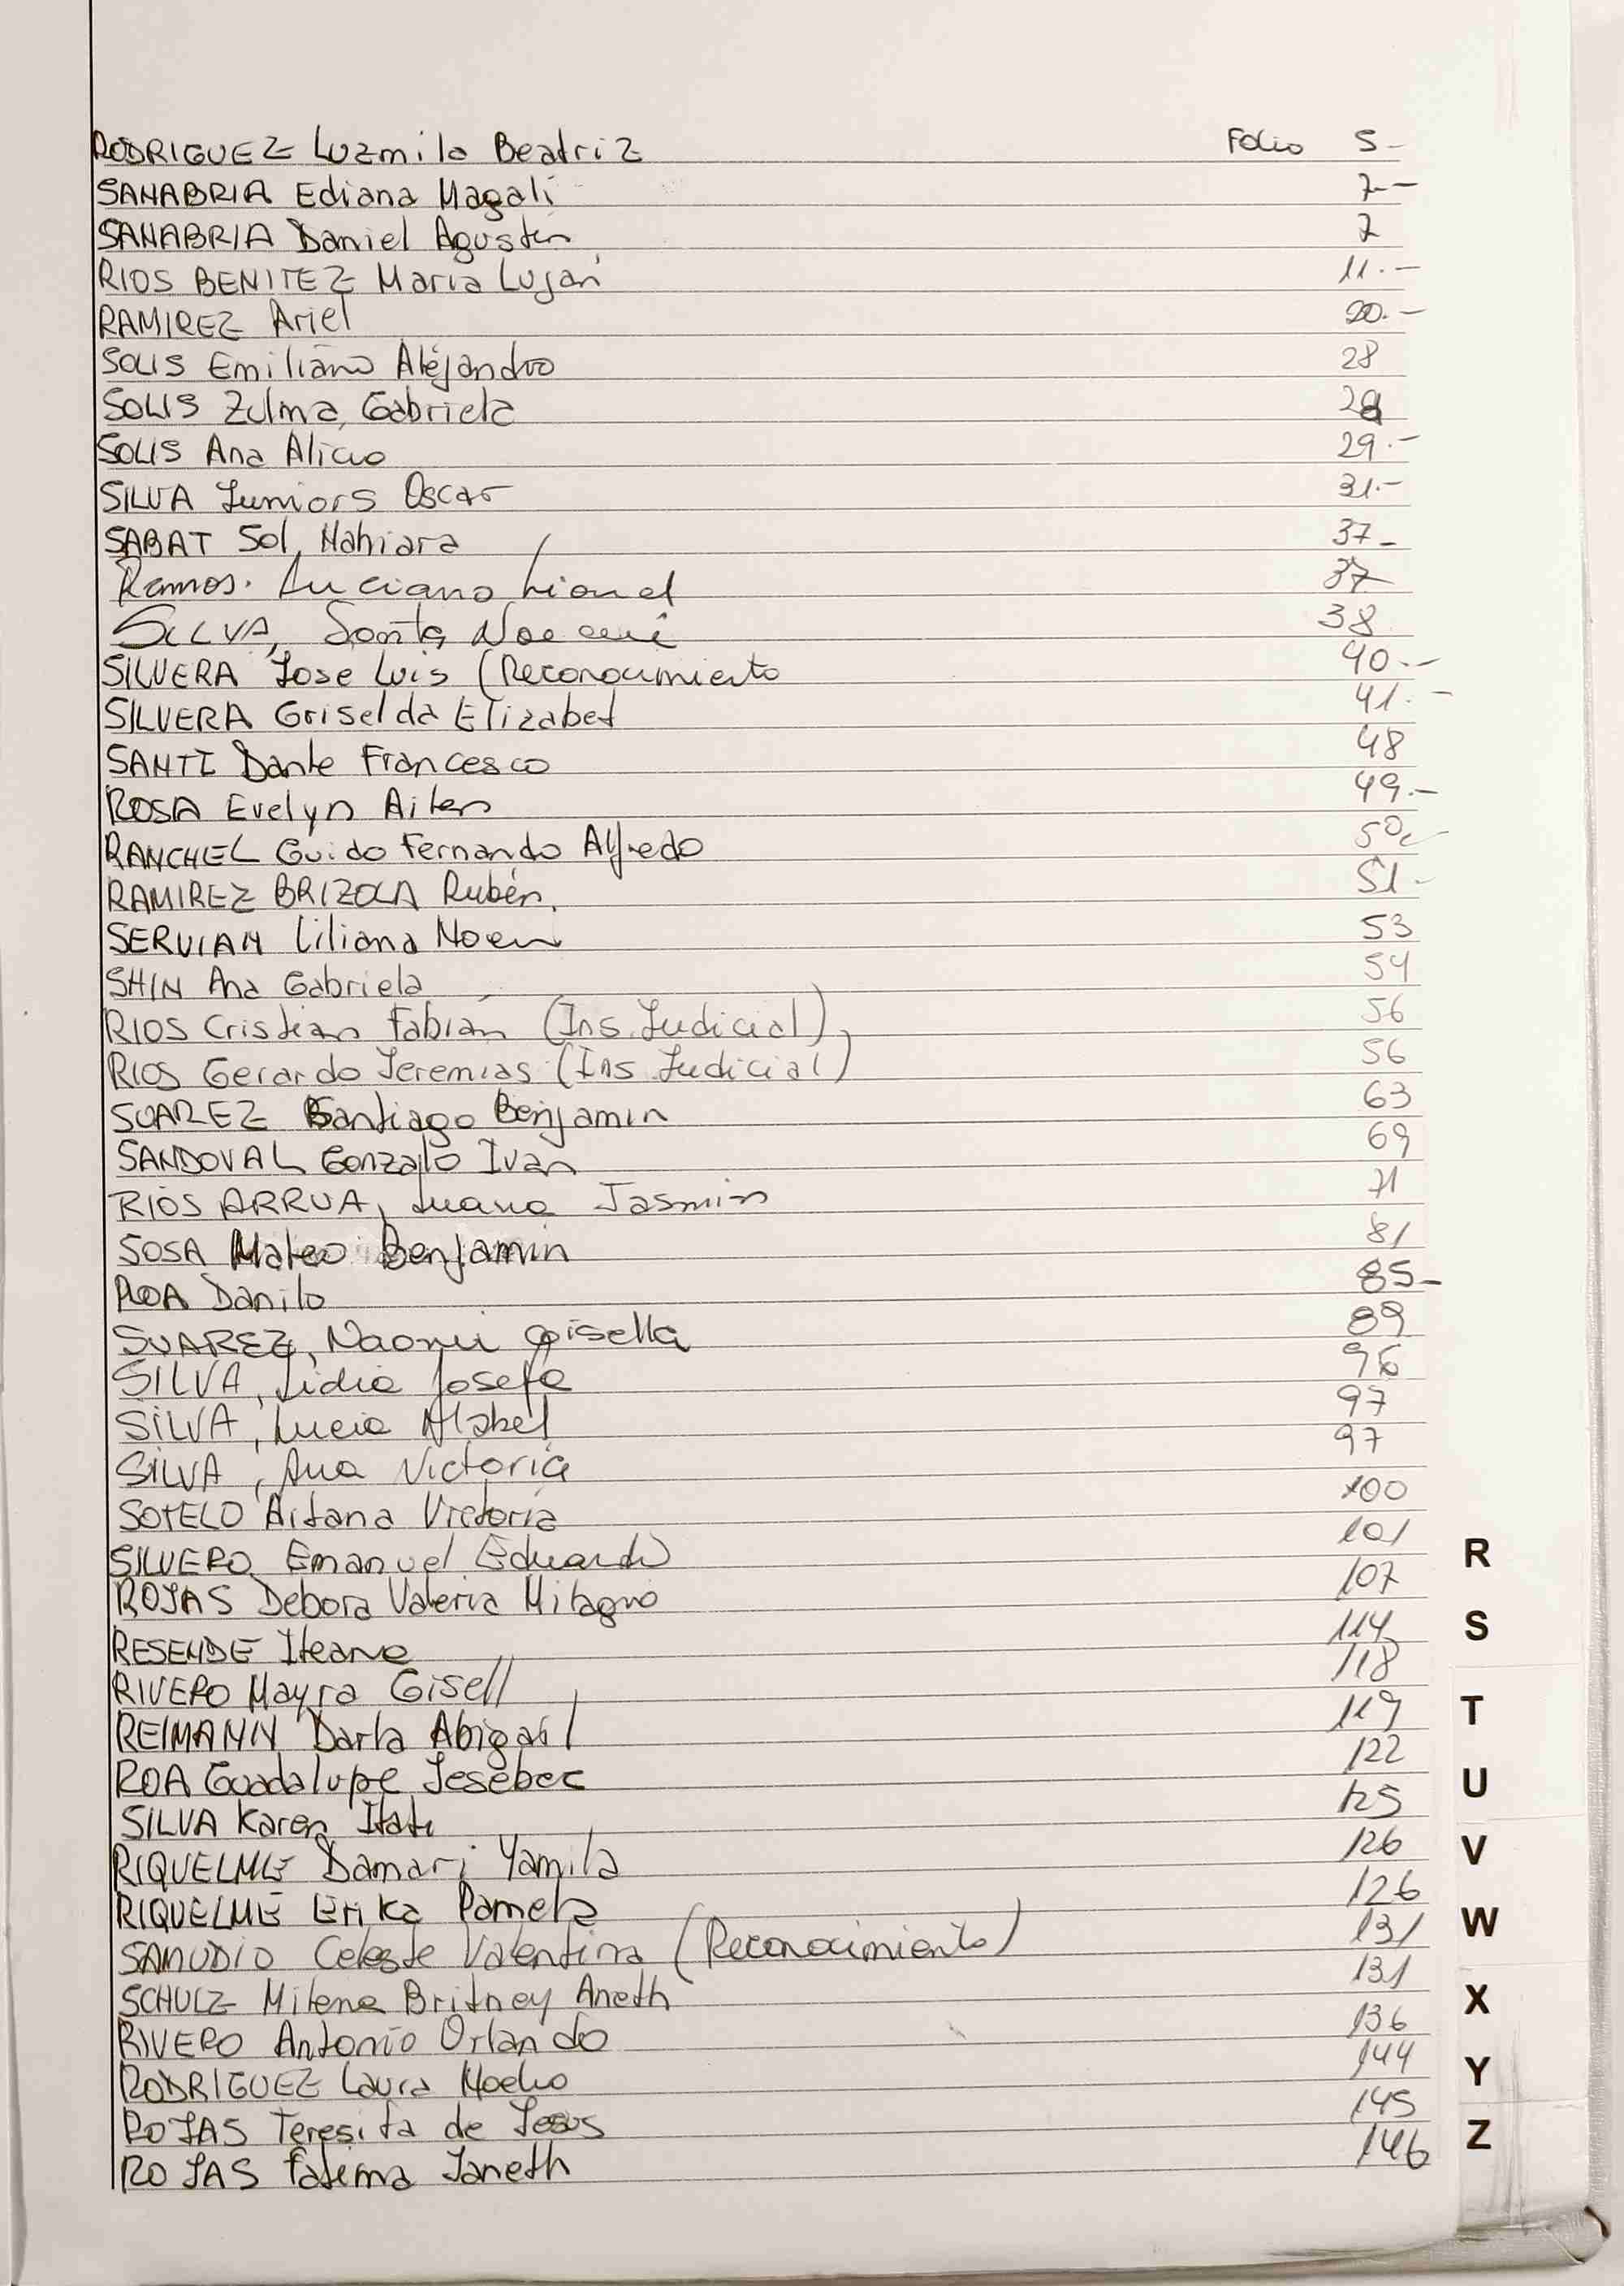 RODRIGUEZ Luzmila Beatriz Folio 5-
SANABRIA Ediana Magali 7-
SANABRIA Daniel Agustin 7
RIOS BENITEZ Maria Lujan 11.-
RAMIREZ Ariel 20.-
SOLIS Emiliano Alejandro 28
SOLIS Zulma Gabriela 29
SOLIS Ana Alicia 29.-
SILVA Juniors Oscar 31.-
SABAT Sol Nahiara 37-
Ramos. Luciano Lionel 37
SILVA, Santa Noemi 38
SILVERA Jose Luis (Reconocimiento 40.-
SILVERA Griselda Elizabet 41.-
SANTI Dante Francesco 48
ROSA Evelyn Ailen 49.-
RANCHEL Guido Fernando Alfredo 50
RAMIREZ BRIZOLA Rubén. 51-
SERVIAN Liliana Noemi 53
SHIN Ana Gabriela 54
RIOS Cristian Fabián (Ins. Judicial) 56
RIOS Gerardo Jeremias (Ins. Judicial) 56
SUAREZ Santiago Benjamin 63
SANDOVAL Gonzalo Ivan 69
RIOS ARRUA, Luana Jasmin 71
SOSA Mateo Benjamin 81
ROA Danilo 85-
SUAREZ, Naomi Gisella 89
SILVA, Lidia Josefa 96
SILVA, Lucia Mabel 97
SILVA, Ana Victoria 97
SOTELO Aitana Victoria 100
SILVERO Emanuel Eduardo 101
ROJAS Debora Valeria Milagro 107
R
RESENDE 114
S
RIVERO Mayra Gisell 118
REIMANN Darla Abigail 119
T
ROA Guadalupe Jesebec 122
U
SILVA Karen Itati 125
RIQUELME Damari Yamila 126
V
RIQUELME Erika Pamela 126
SAMUDIO Celeste Valentina (Reconocimiento) 131
W
SCHULZ Milena Britney Aneth 131
X
RIVERO Antonio Orlando 136
RODRIGUEZ Laura Noelia 144
Y
ROJAS Teresita de Jesus 145
Z
ROJAS Fatima Janeth 146